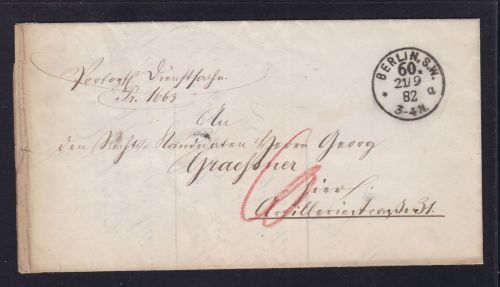 Portopfl. Dienstsache.
Nr. 1665
BERLIN. S.W.
60. a
21/9
82
3-4N.
An
den Rechts-Kandidaten Herrn Georg
Graeßner
6
hier
Artilleriestraße 31.